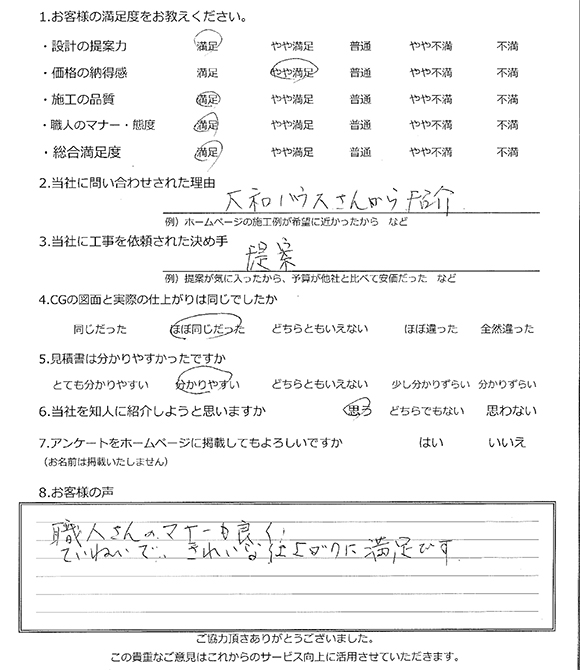 1.お客様の満足度をお教えください。
・設計の提案力 満足 やや満足 普通 やや不満 不満
・価格の納得感 満足 やや満足 普通 やや不満 不満
・施工の品質 満足 やや満足 普通 やや不満 不満
・職人のマナー・態度 満足 やや満足 普通 やや不満 不満
・総合満足度 満足 やや満足 普通 やや不満 不満
2.当社に問い合わせされた理由
大和ハウスさんから紹介
例）ホームページの施工例が希望に近かったから など
3.当社に工事を依頼された決め手
提案
例）提案が気に入ったから、予算が他社と比べて安価だった など
4.CGの図面と実際の仕上がりは同じでしたか
同じだった ほぼ同じだった どちらともいえない ほぼ違った 全然違った
5.見積書は分かりやすかったですか
とても分かりやすい 分かりやすい どちらともいえない 少し分かりずらい 分かりずらい
6.当社を知人に紹介しようと思いますか 思う どちらでもない 思わない
7.アンケートをホームページに掲載してもよろしいですか はい いいえ
（お名前は掲載いたしません）
8.お客様の声
職人さんのマナーも良く、
ていねいで、きれいな仕上がりに満足です
ご協力頂きありがとうございました。
この貴重なご意見はこれからのサービス向上に活用させていただきます。